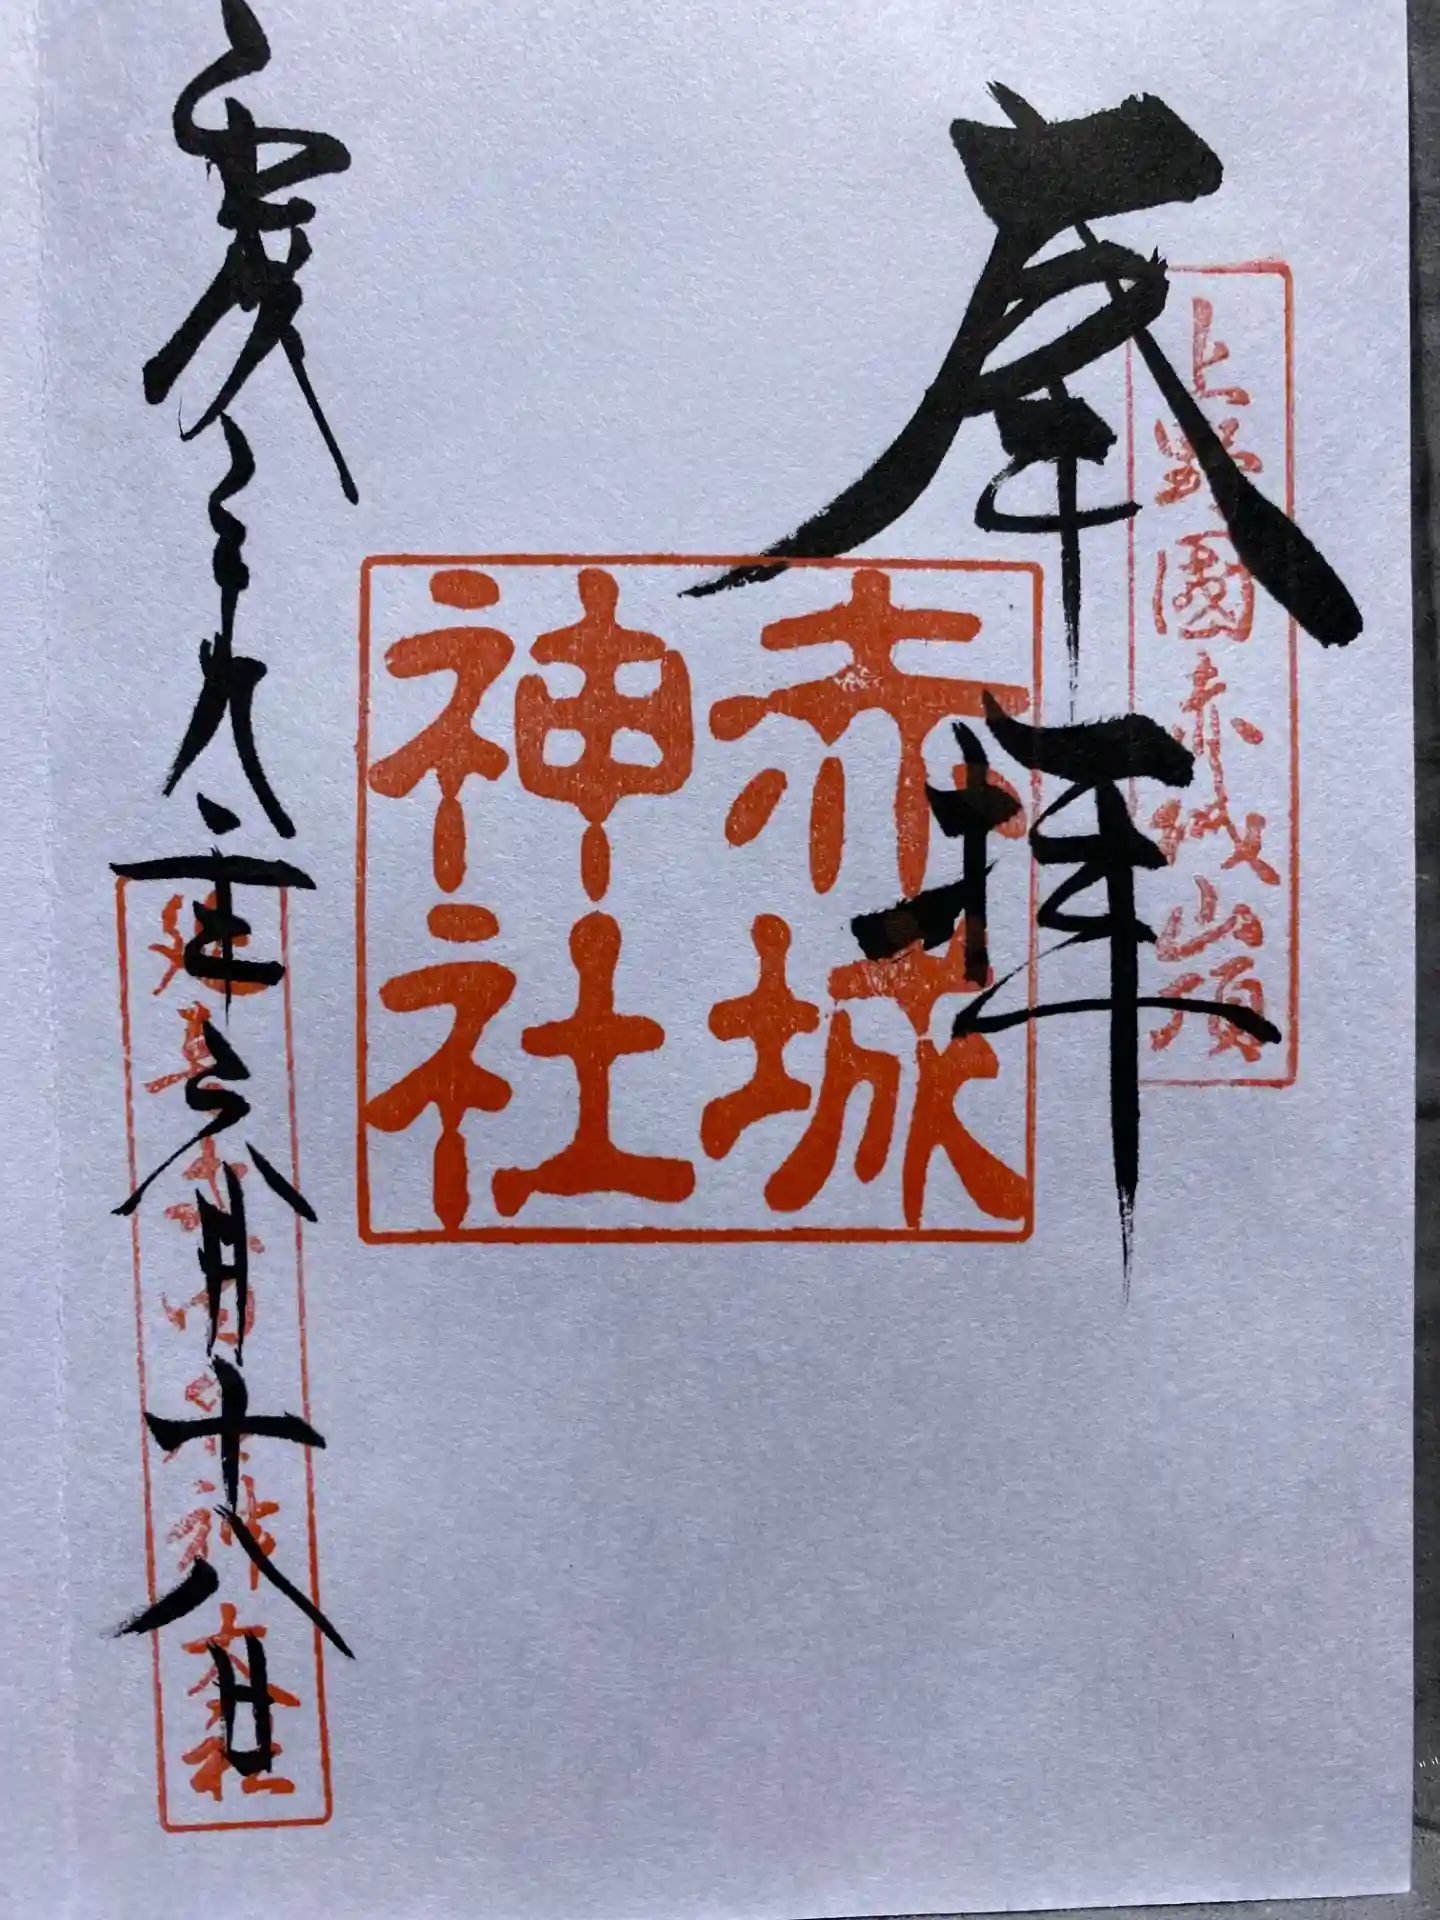 奉拝
上野國赤城山頂
赤城神社
年六月十八日
延喜式内名神大社